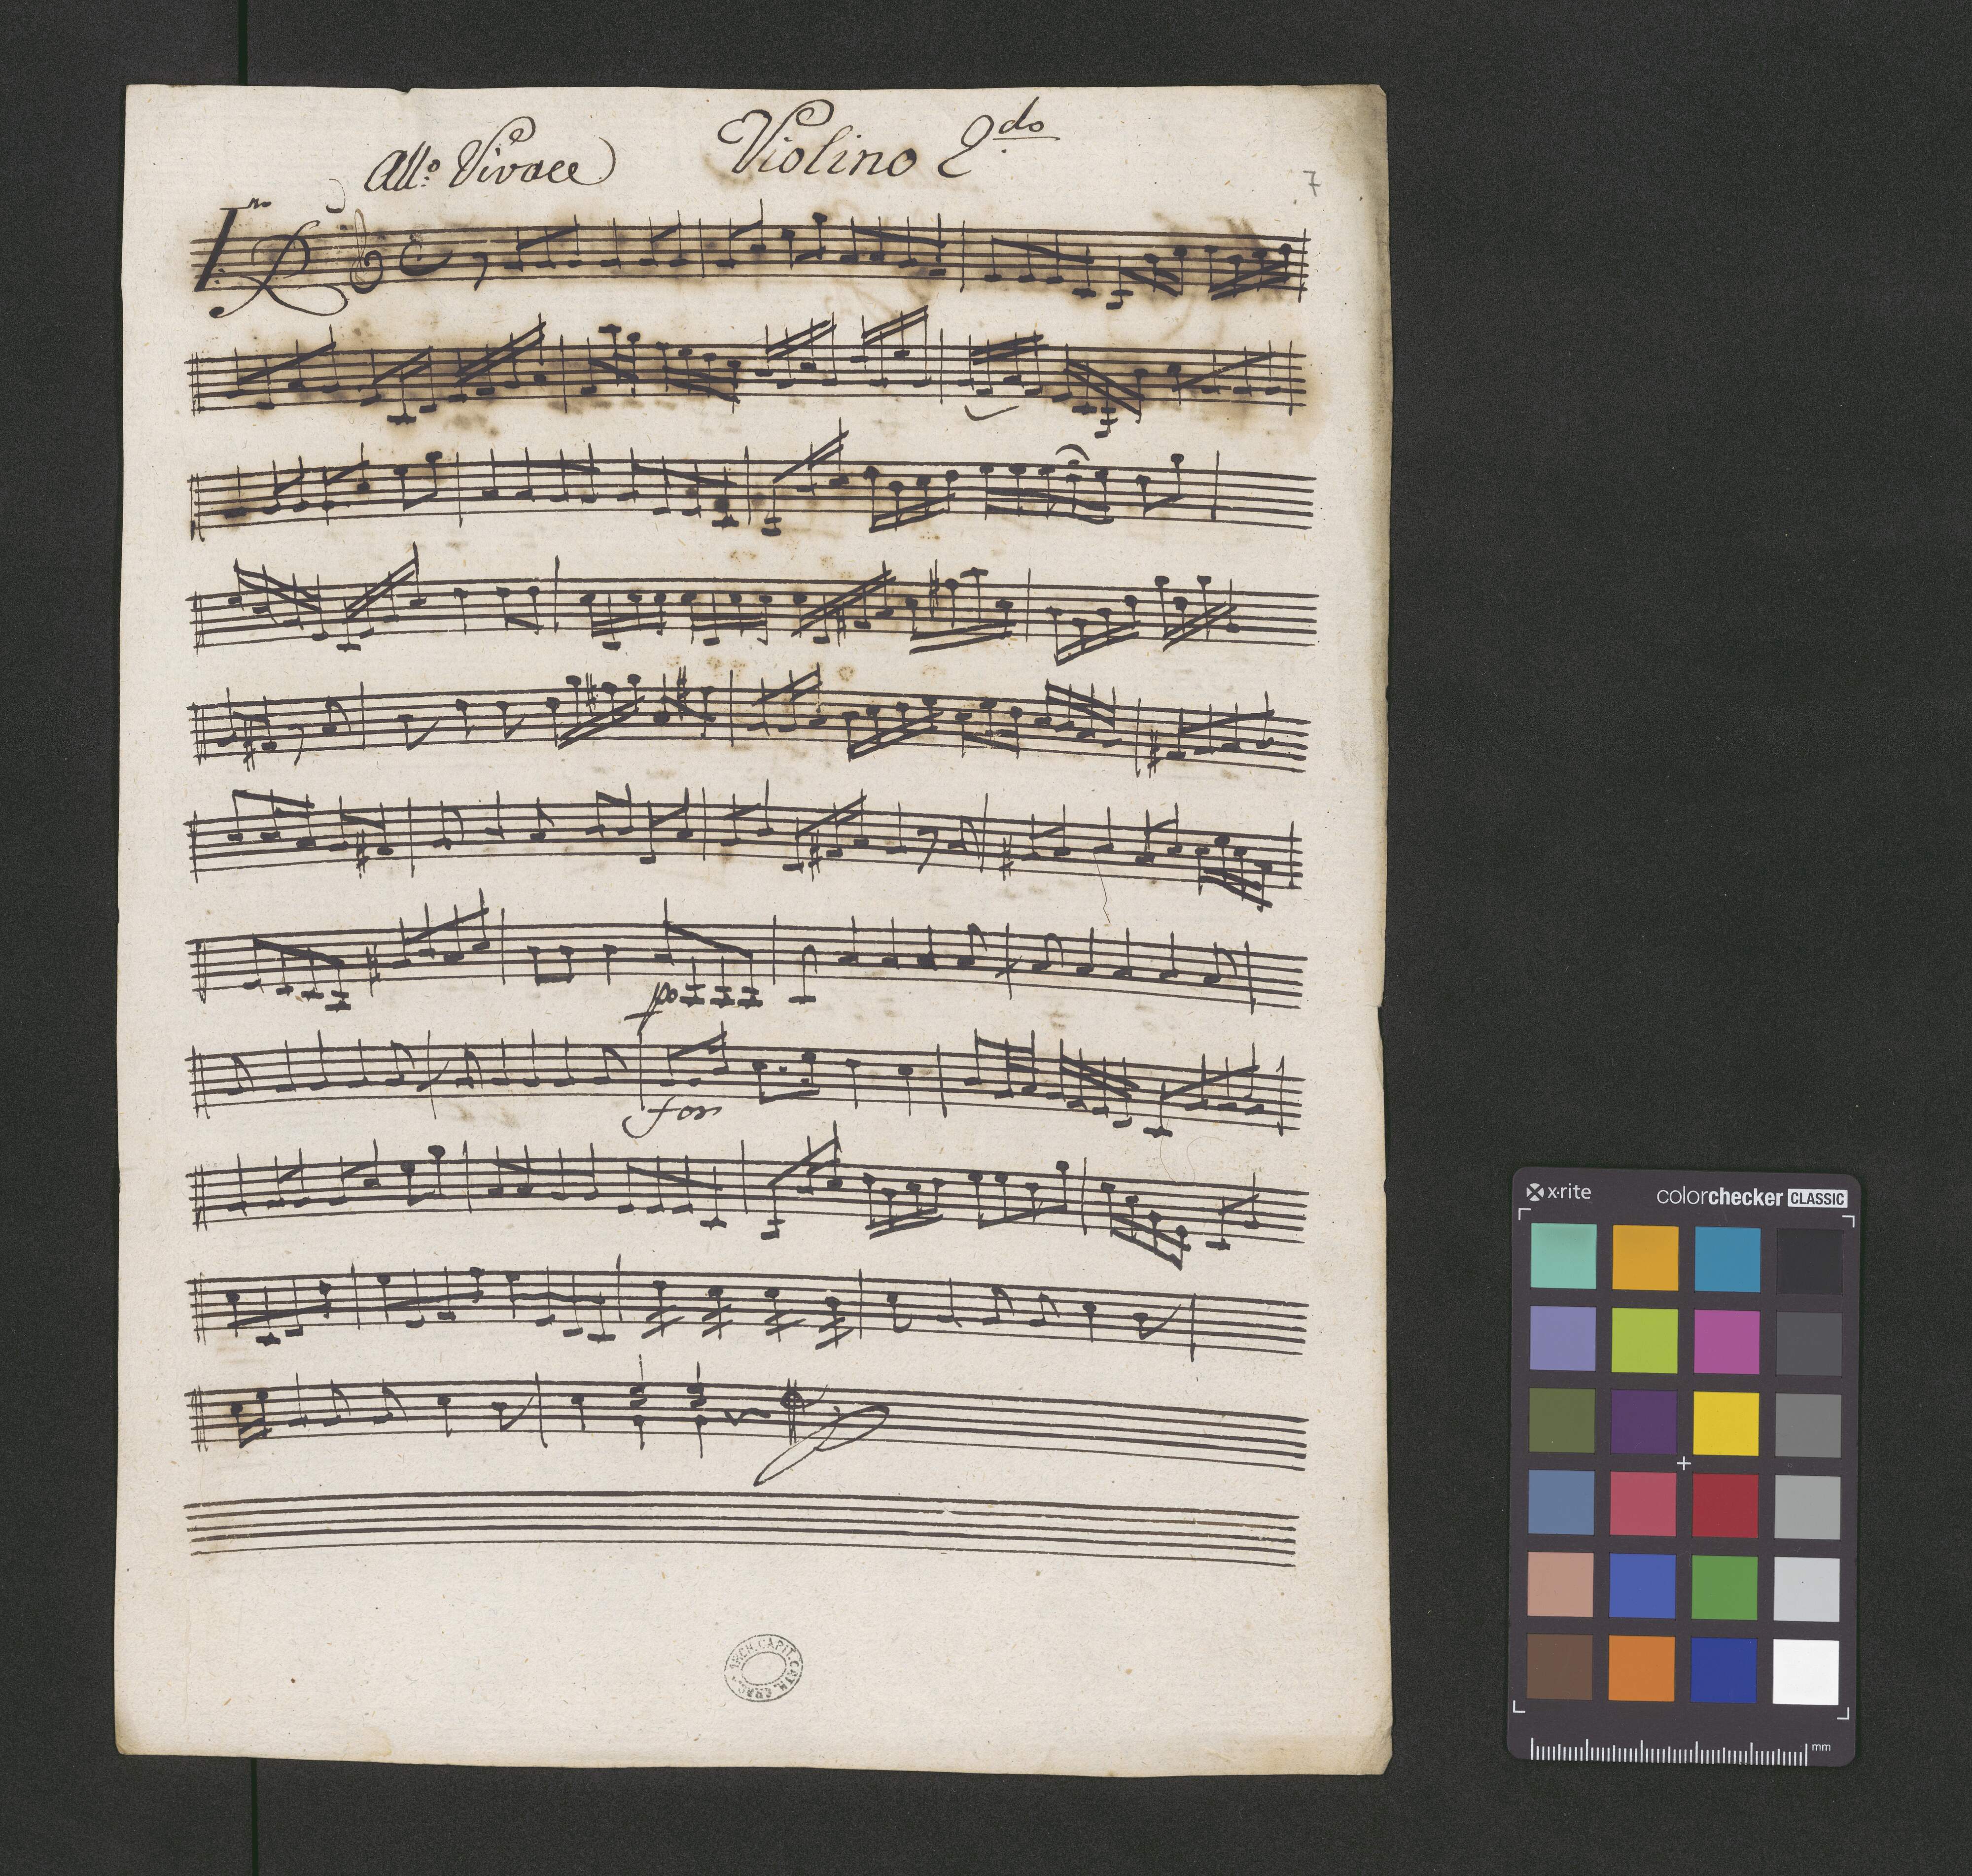 All.º Vivace Violino 2.do
7
I.mo
po
for
ARCH. CAPIT. CATH. CRAC.
x·rite colorchecker CLASSIC
mm